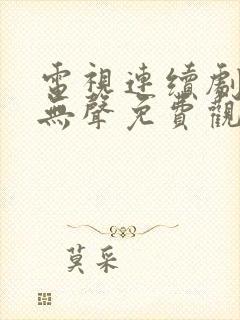 電視連續劇
無聲免費觀
莫采